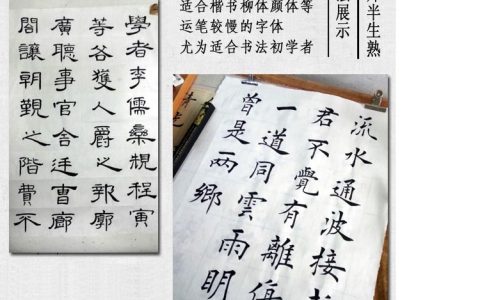 适合楷书柳体颜体等
运笔较慢的字体
尤为适合书法初学者
半生熟
展示
學者李儒欒規程寅
等各獲人爵之報廓
廣聽事官舍廷曹廊
讓朝覲之階費不
流水通波接
君不覺有離傷
一道同雲雨明
曾是兩鄉